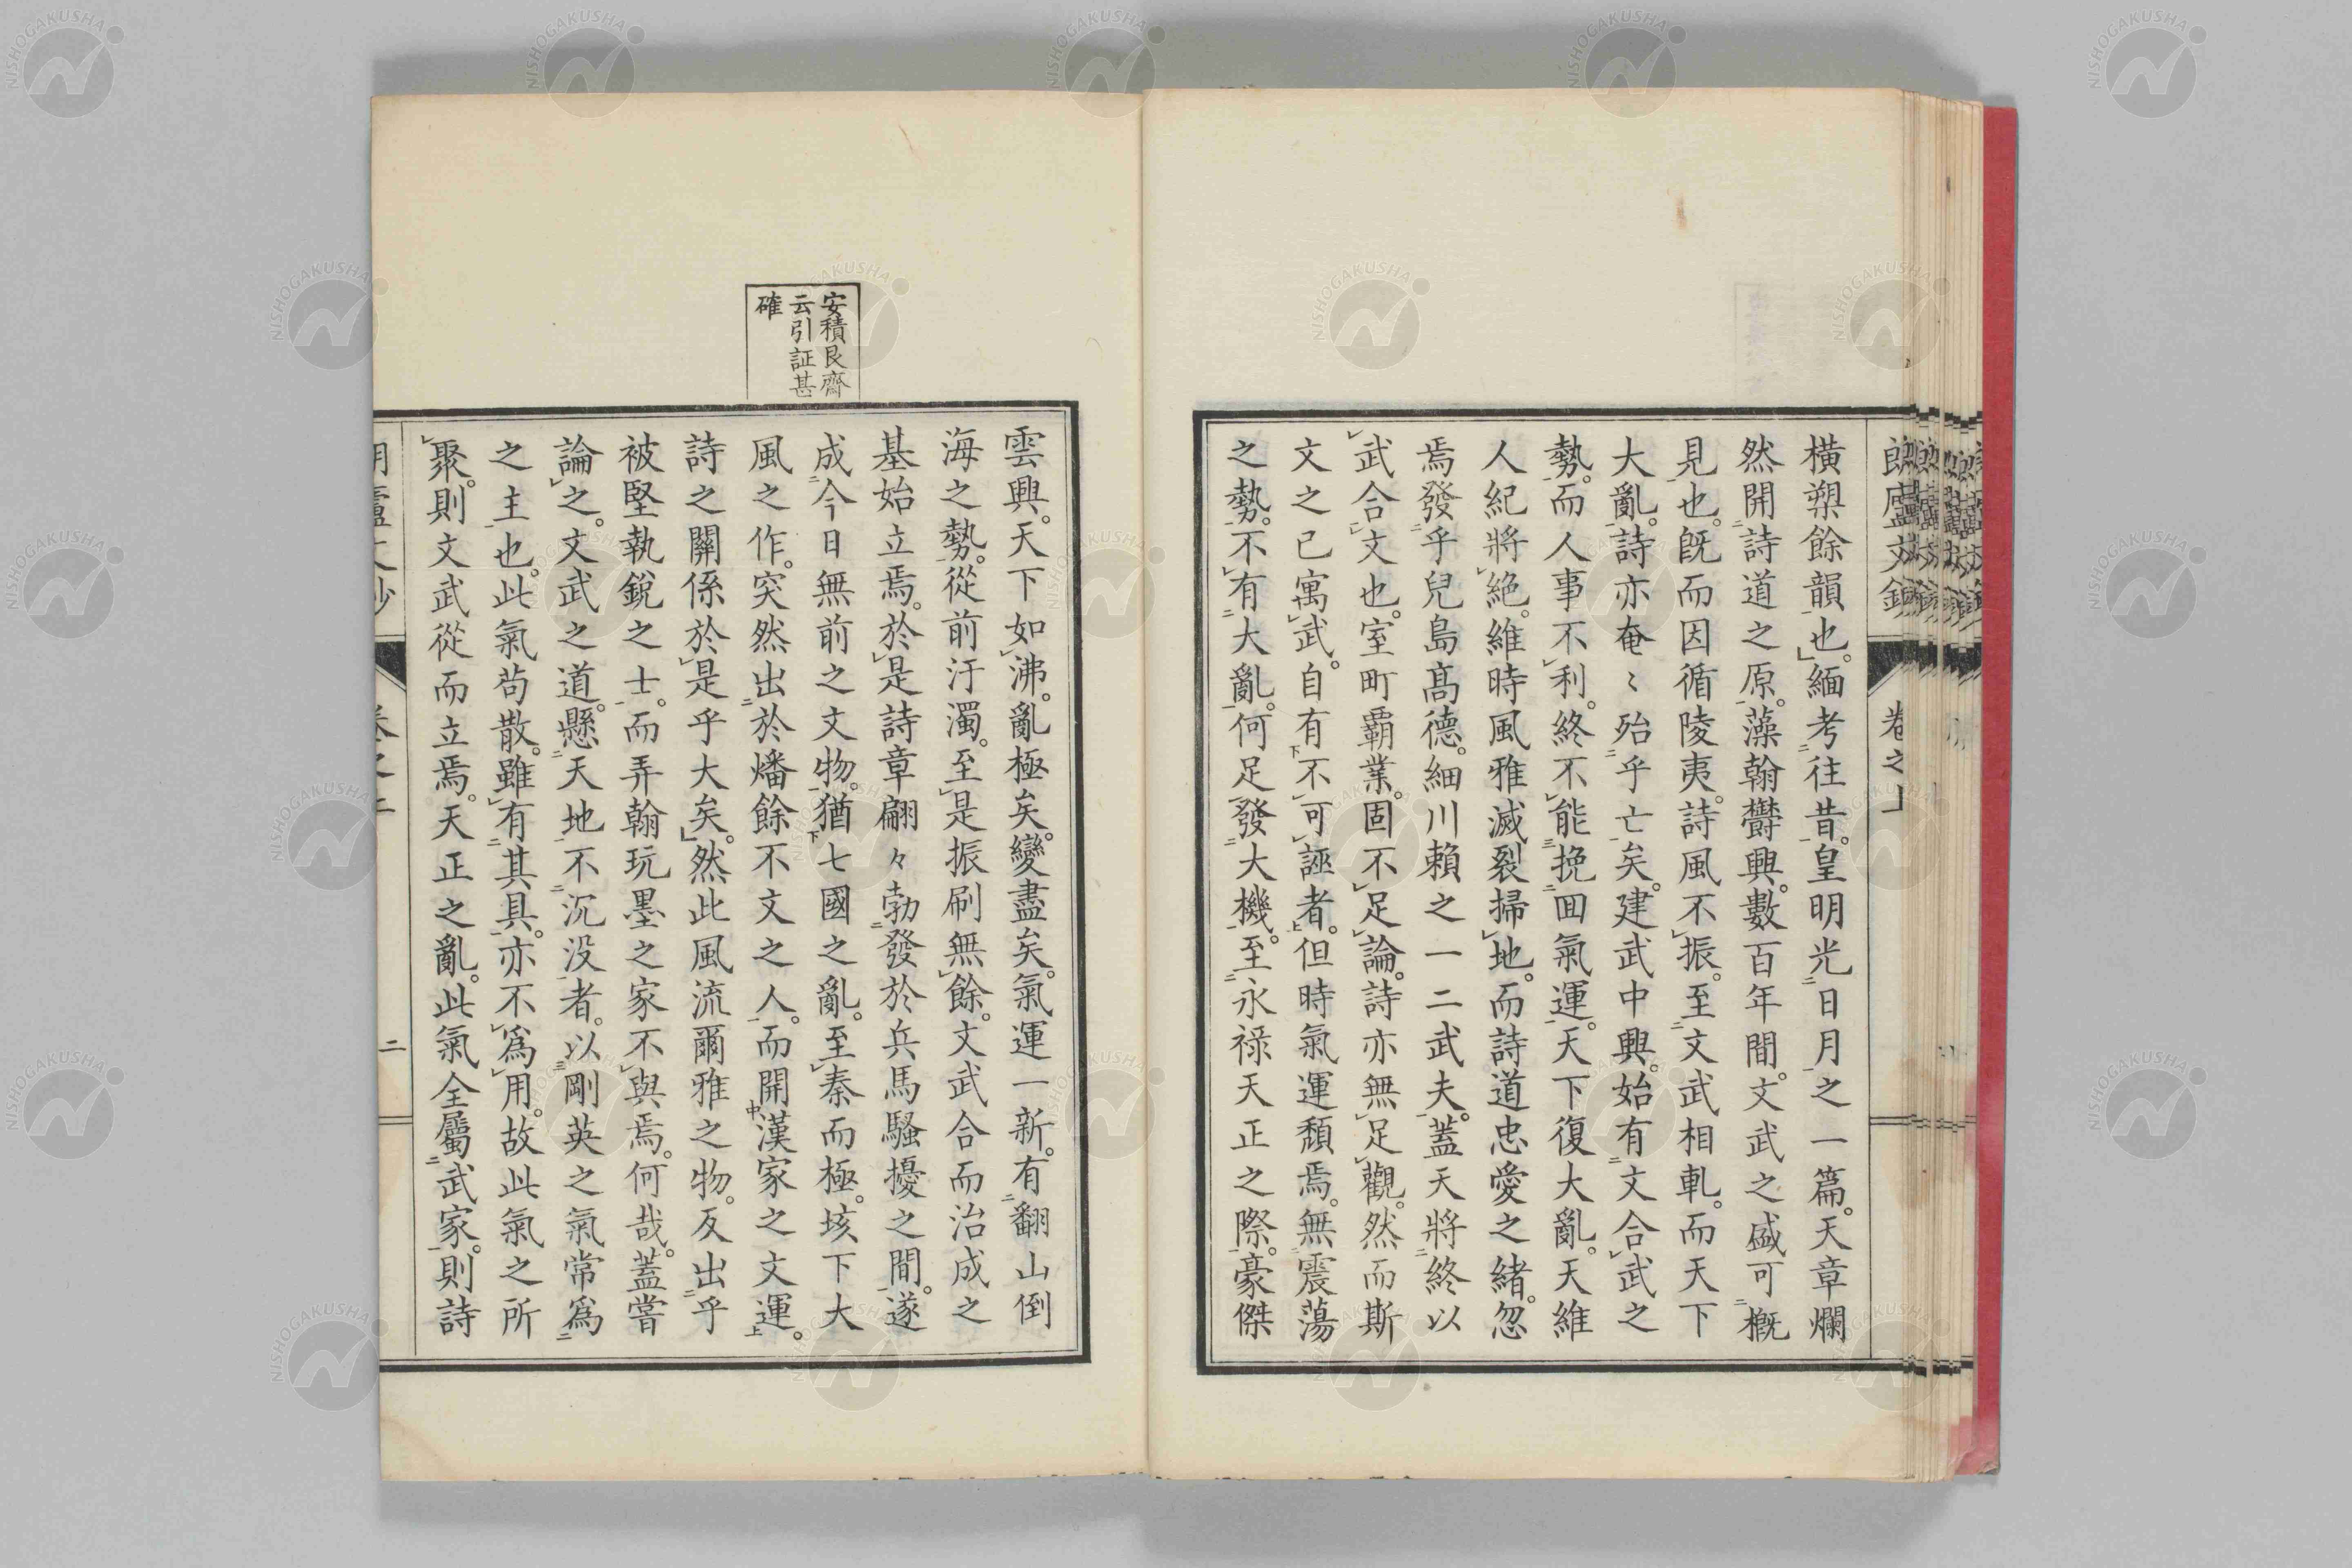 橫槊餘韻也。緬考往昔。皇明光日月之一篇。天章爛
然開詩道之原。藻翰欝興。數百年間。文武之盛可概
見也。旣而因循陵夷。詩風不振。至文武相軋。而天下
大亂。詩亦奄〻殆乎亡矣。建武中興。始有文合武之
勢。而人事不利。終不能挽回氣運。天下復大亂。天維
人紀將絕。維時風雅滅裂掃地。而詩道忠愛之緒。忽
焉發乎兒島髙德。細川賴之一二武夫。蓋天將終以
武合文也。室町霸業。固不足論。詩亦無足觀。然而斯
文之已寓武。自有不可誣者。但時氣運頹焉。無震蕩
之勢。不有大亂。何足發大機。至永祿天正之際。豪傑
安積艮齋
云引証甚
確
雲興。天下如沸。亂極矣。變盡矣。氣運一新。有翻山倒
海之勢。從前汙濁。至是振刷無餘。文武合而治成之
基始立焉。於是詩章翩々勃發於兵馬騷擾之間。遂
成今日無前之文物。猶七國之亂。至秦而極。垓下大
風之作。突然出於燔餘不文之人。而開漢家之文運。
詩之關係於是乎大矣。然此風流爾雅之物。反出乎
被堅執銳之士。而弄翰玩墨之家不與焉。何哉。蓋嘗
論之。文武之道。懸天地不沉没者。以剛英之氣常爲
之主也。此氣苟散。雖有其具。亦不爲用。故此氣之所
聚。則文武從而立焉。天正之亂。此氣全屬武家。則詩
二
NISHOGAKUSHA